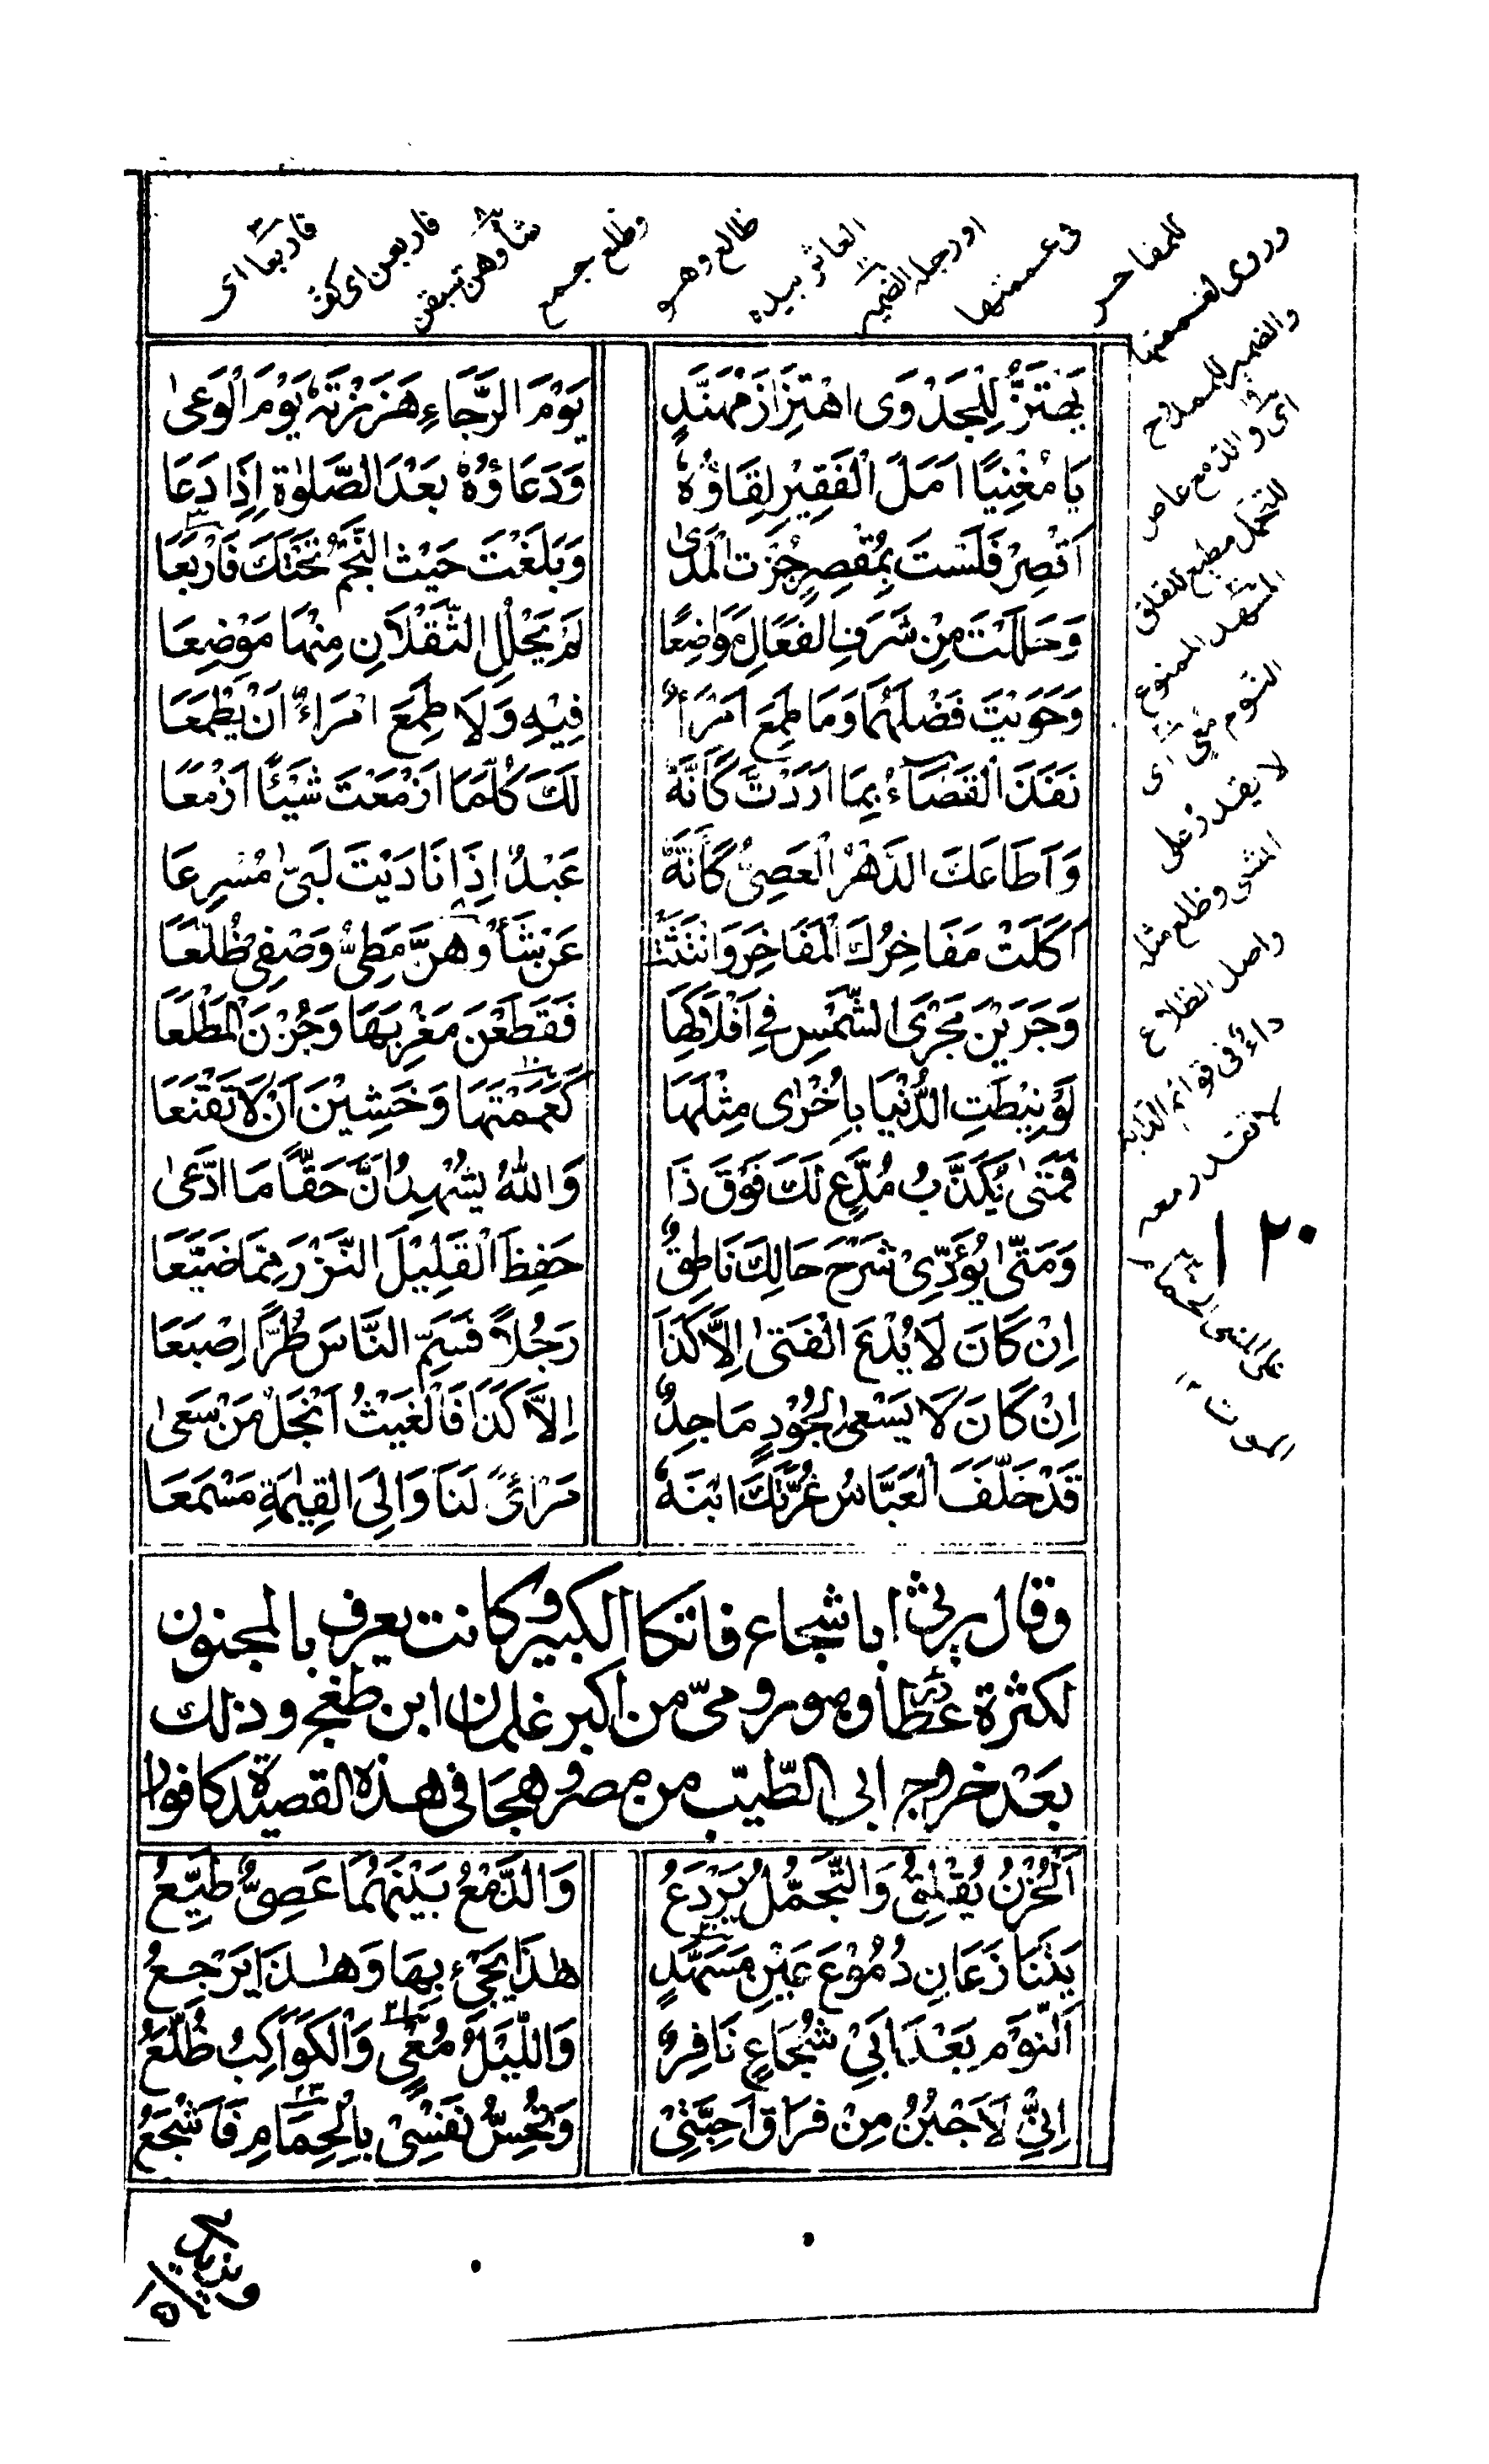 يَهْتَزُّ لِلْجَدْوَى اهْتِزَازَ مُهَنَّدٍ يَوْمَ الرَّجَاءِ هَزَزْتَهٗ يَوْمَ الْوَعٰى
يَا مُغْنِيًا اَمَلَ الْفَقِيْرِ لِقَاؤُهٗ وَدَعَاؤُهٗ بَعْدَ الصَّلٰوةِ اِذَا دَعَا
اَقْصِرْ فَلَسْتَ بِمُقْصِرٍ جُزْتَ الْمَدٰى وَبَلَغْتَ حَيْثُ النَّجْمُ تَحْتَكَ فَارْبَعَا
وَحَلَلْتَ مِنْ شَرَفِ الْفَعَالِ مَوَاضِعًا لَمْ يَحْلُلِ الثَّقَلَانِ مِنْهَا مَوْضِعَا
وَحَوَيْتَ فَضْلَهُمَا وَمَا طَمِعَ امْرَأٌ فِيْهِ وَلَا طَمِعَ امْرَاءٌ اَنْ يَّطْمَعَا
نَفَذَ الْقَضَاءُ بِمَا اَرَدْتَّ كَاَنَّهٗ لَكَ كُلَّمَا اَزْمَعْتَ شَيْئًا اَزْمَعَا
وَاَطَاعَكَ الدَّهْرُ الْعَصِيُّ كَاَنَّهٗ عَبْدٌ اِذَا نَادَيْتَ لَبّٰى مُسْرِعَا
اَكَلَتْ مَفَاخِرُكَ الْمَفَاخِرَ وَانْثَنَتْ عَنْ شَأْوِهِنَّ مَطِيُّ وَصْفِيْ ظُلَّعَا
وَجَرَيْنَ مَجْرَى الشَّمْسِ فِيْ اَفْلَاكِهَا فَقَطَعْنَ مَغْرِبَهَا وَجُزْنَ الْمَطْلَعَا
لَوْ نِيْطَتِ الدُّنْيَا بِاُخْرٰى مِثْلِهَا لَعَمَمْتَهَا وَخَشِيْنَ اَنْ لَا تَقْنَعَا
فَمَتٰى يُكَذَّبُ مُدَّعٍ لَكَ فَوْقَ ذَا وَاللهُ يَشْهَدُ اَنَّ حَقًّا مَا ادَّعٰى
وَمَتٰى يُؤَدِّيْ شَرْحَ حَالِكَ نَاطِقٌ حَفِظَ الْقَلِيْلَ النَّزْرَ مِمَّا ضَيَّعَا
اِنْ كَانَ لَا يُدْعَ الْفَتٰى اِلَّا كَذَا رَجُلًا فَسَمِّ النَّاسَ طُرًّا اِصْبَعَا
اِنْ كَانَ لَا يَسْعٰى لِجُوْدٍ مَاجِدٌ اِلَّا كَذَا فَالْغَيْثُ اَبْخَلُ مَنْ سَعٰى
قَدْ خَلَّفَ الْعَبَّاسُ غُرَّتَكَ ابْنَهٗ مَرْاًى لَنَا وَاِلَى الْقِيٰمَةِ مَسْمَعَا
وقال يرثي ابا شجاع فاتكا الكبير وكانت يعرف بالمجنون
لكثرة عطاؤه وهو رومىّ من اكبر غلمان ابن طغج وذلك
بَعْد خروج ابى الطّيّب من مصر وهجَا فى هذه القصيدة كافورا
اَلْحُزْنُ يُقْلِقُ وَالتَّجَمُّلُ يَرْدَعُ وَالدَّمْعُ بَيْنَهُمَا عَصِيٌّ طَيِّعُ
يَتَنَازَعَانِ دُمُوْعَ عَيْنِ مُسَهَّدٍ هٰذَا يَجِيْءُ بِهَا وَهٰذَا يَرْجِعُ
اَلنَّوْمُ بَعْدَ اَبِيْ شُجَاعٍ نَافِرٌ وَاللَّيْلُ مُعْيٍ وَالْكَوَاكِبُ ظُلَّعُ
اِنِّيْ لَاَجْبُنُ مِنْ فِرَاقِ اَحِبَّتِيْ وَتُحِسُّ نَفْسِيْ بِالْحِمَامِ فَاَشْجَعُ
وروى لعممنها
والضمير للممدوح
للتجمل مطيع للقلق
المسهد الممنوع
النوم
لا يقدر على
المشى وظلع مثله
واصل الظلاع
داء فى قوائم الدابة
لا تقدر معه
١٢٠
ويزيدنى